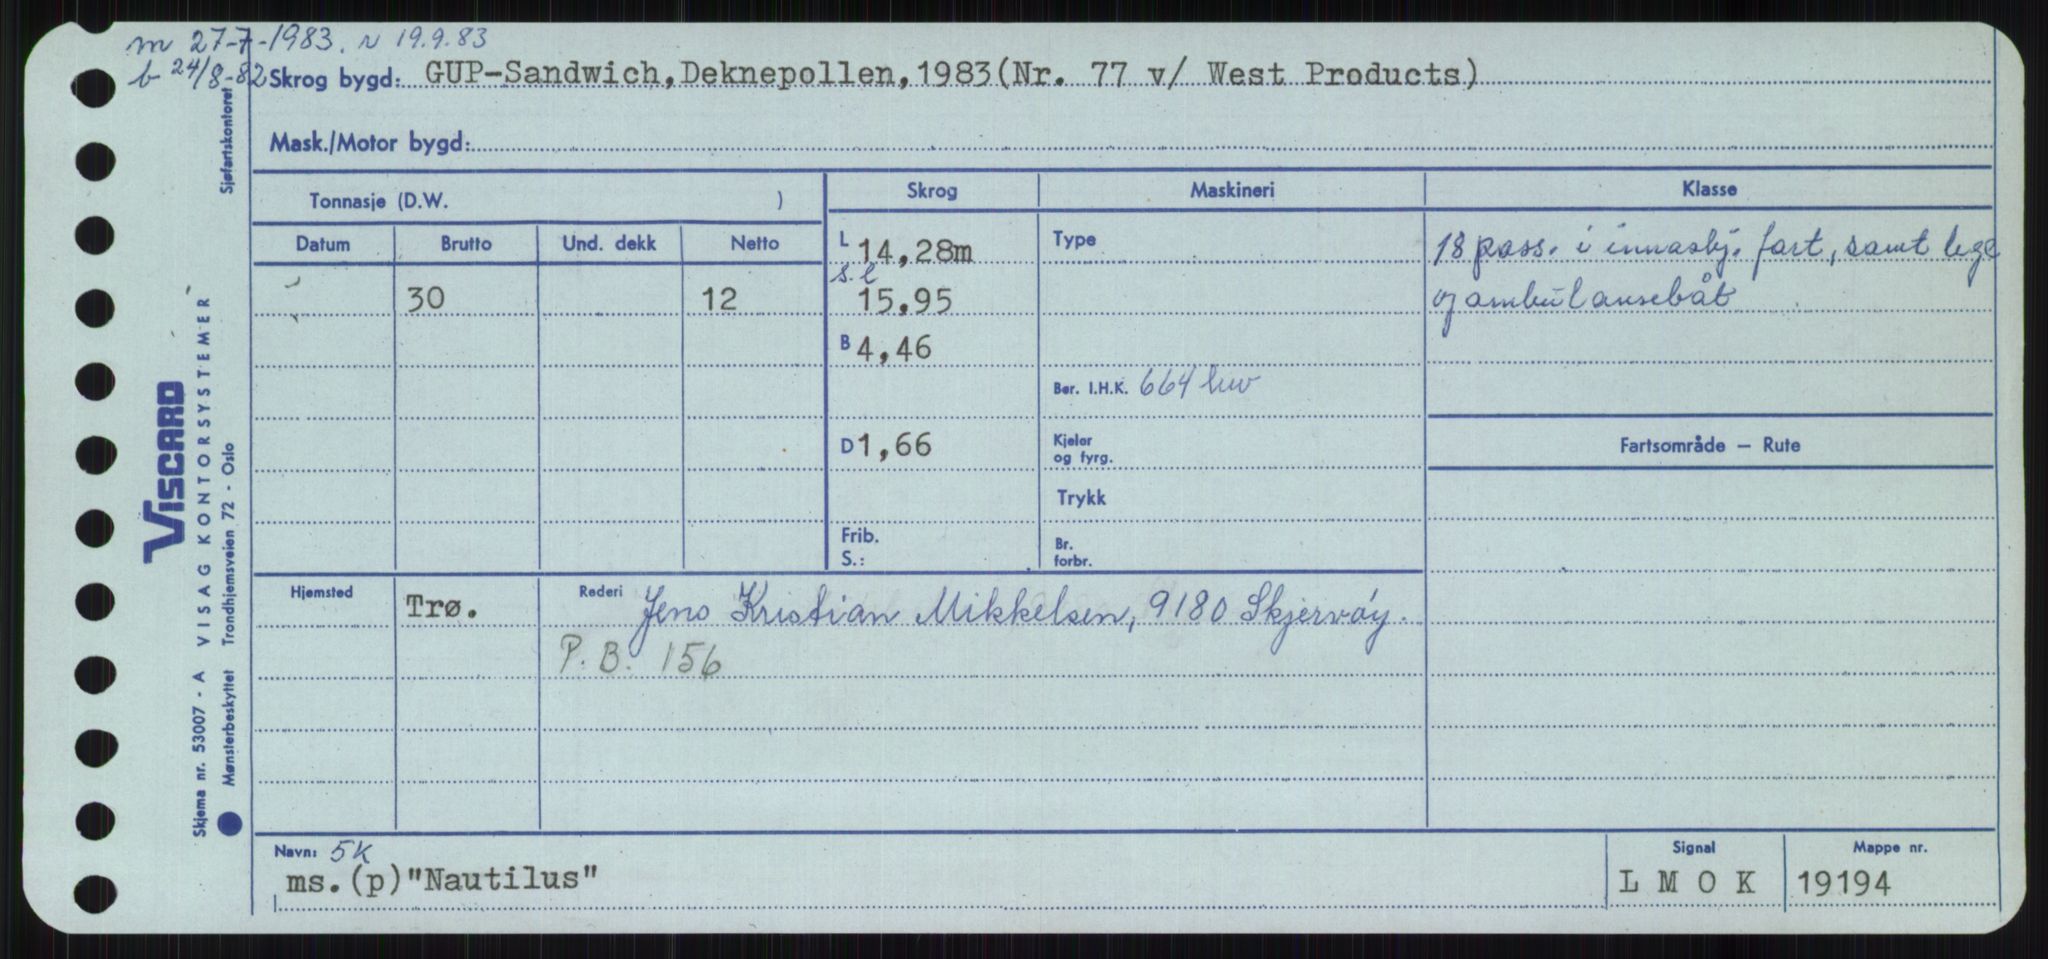 m 27-7-1983. N 19.9.83
b 24/8-82
Skrog bygd: GUP-Sandwich, Deknepollen, 1983(Nr. 77 v/ West Products)
Mask./Motor bygd:
Tonnasje (D.W. )
Skrog
Maskineri
Klasse
Datum Brutto Und. dekk Netto
L 14,28m
Type
18 pass. i innaskj. fart, samt lege
30 12
s.l 15,95
og ambulansebåt
B 4,46
Ber. I.H.K. 664 kw
D 1,66
Kjeler
og fyrg.
Fartsområde — Rute
Trykk
Frib.
S.:
Br.
forbr.
Hjemsted Trø.
Rederi Jens Kristian Mikkelsen, 9180 Skjervøy.
P.B. 156
Navn: SK
ms.(p)"Nautilus"
Signal
L M O K
Mappe nr.
19194
Sjøfartskontoret
VISCARD
VISAG KONTORSYSTEMER
Trondhjemsveien 72 - Oslo
Skjema nr. 53007 - A
Mønsterbeskyttet